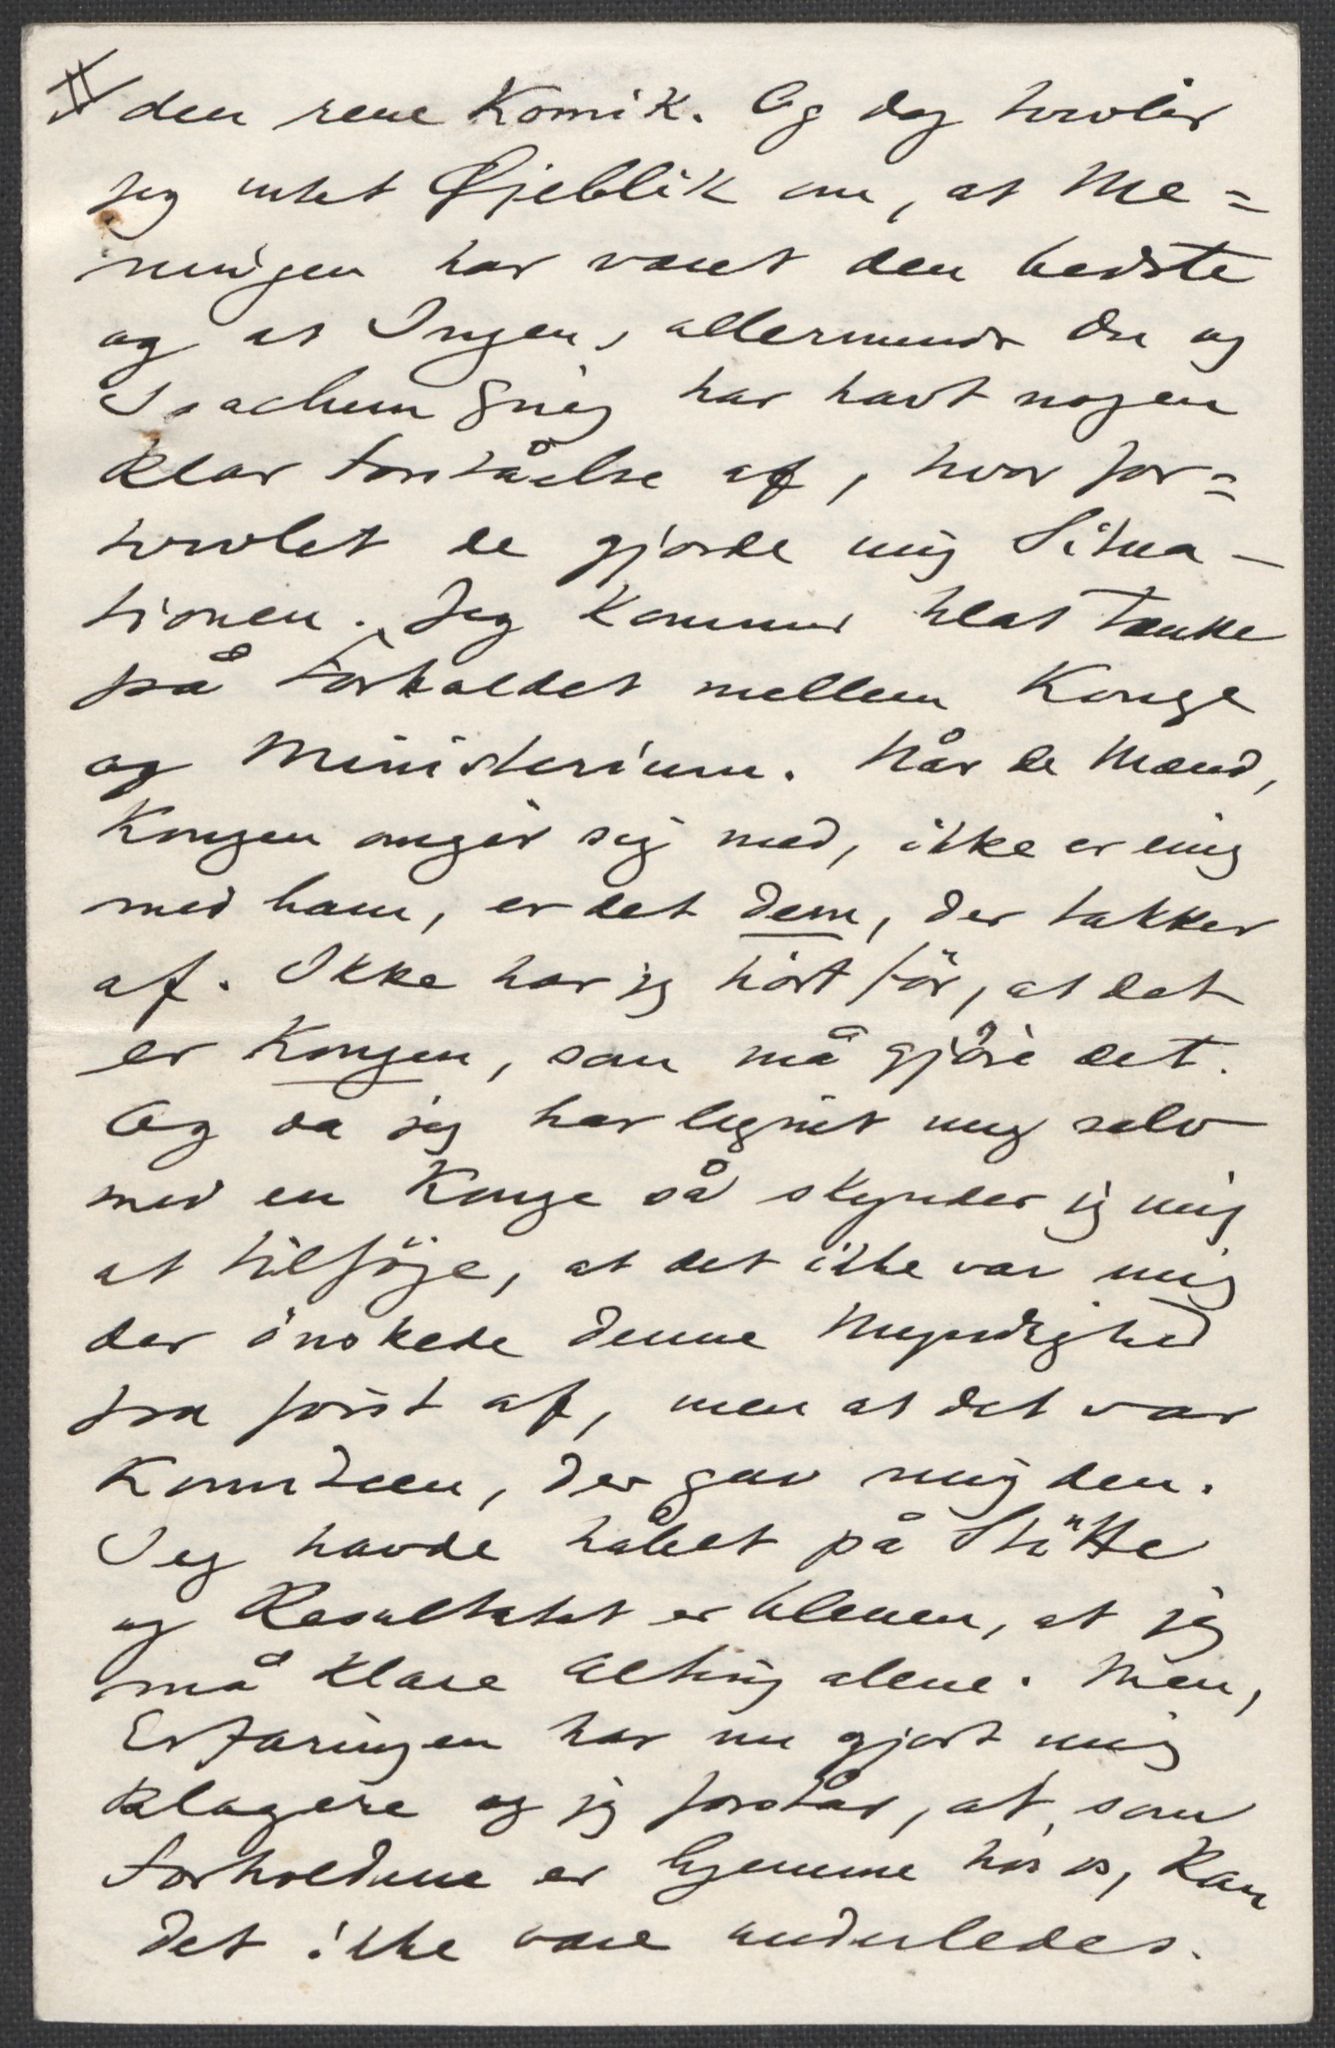 II
den rene Komik. Og dog tvivler
jeg intet Øjeblik om, at Me=
ningen har været den bedste
og at Ingen, allermindst Du og
Joachim Grieg har havt nogen
klar Forståelse af, hvor for=
tvivlet de gjorde mig Situa-
tionen. Jeg kommer til at tænke
på Forholdet mellem Konge
og Ministerium. Når de Mænd,
Kongen omgir sig med, ikke er enig
med ham, er det dem, der takker
af. Ikke har jeg hört för, at det
er Kongen, som må gjöre det.
Og da jeg har lignet mig selv
med en Konge så skynder jeg mig
at tilföje, at det ikke var mig
der önskede denne Myndighed
fra först af, men at det var
Komiteen, der gav mig den.
Jeg havde håbet på Stötte
og Resultatet er bleven, at jeg
må klare Alting alene. Men,
Erfaringen har nu gjort mig
klogere og jeg forstår, at, som
Forholdene er hjemme hos os, kan
det ikke være anderledes.